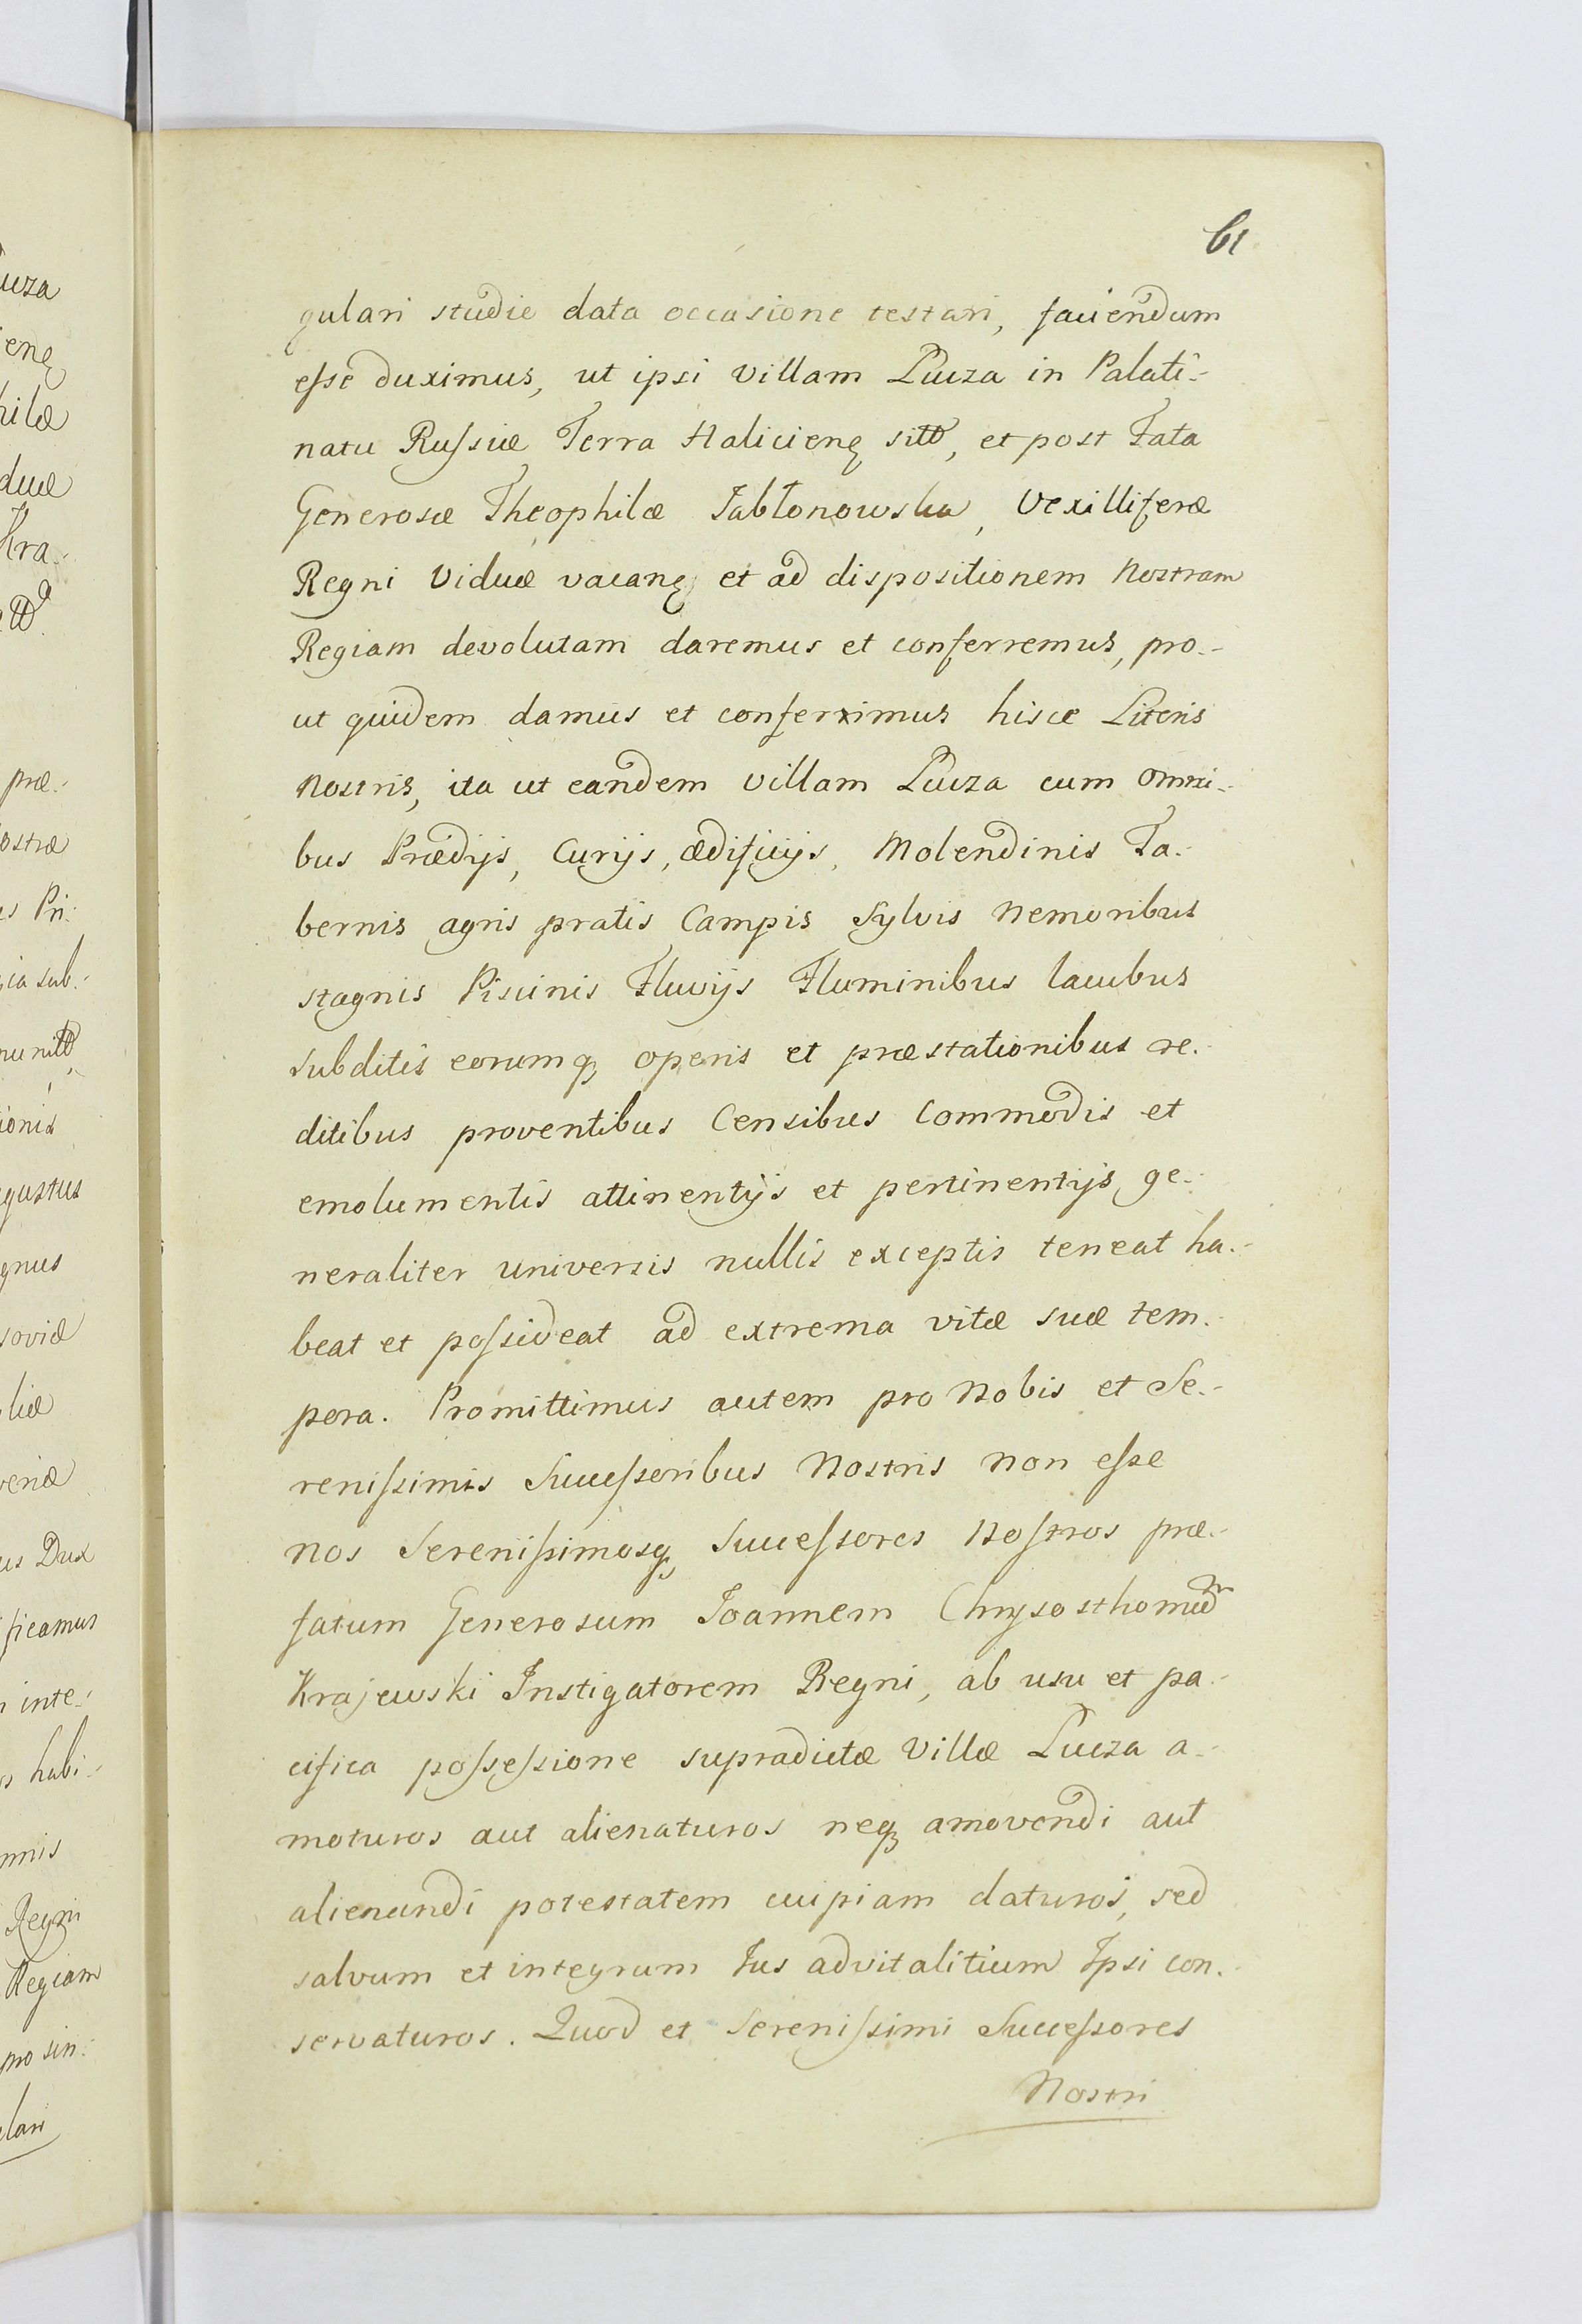 61
gulari studie data occasione testari, faciendum
esse duximus, ut ipsi villam Łucza in Palati-
natu Russiæ Terra Halicienę sittt, et post Fata
Generosæ Theophilæ Jabłonowska, Vexilliferæ
Regni Viduæ vacanę et ad dispositionem Nostram
Regiam devolutam daremus et conferremus, pro-
ut quidem damus et conferrimus hisce Literis
Nostris, ita ut eandem villam Łucza cum omni-
bus Prædijs, Curijs, ædificijs, Molendinis Ta-
bernis agris pratis Campis Sylvis Nemoribus
stagnis Piscinis Fluvijs Fluminibus lacubus
subditis eorumq operis et præstationibus re-
ditibus proventibus Censibus Commodis et
emolumentis attinentijs et pertinentijs, ge-
neraliter universis nullis exceptis teneat ha-
beat et possideat ad extrema vitæ suæ tem-
pora. Promittimus autem pro Nobis et Se-
renissimis Successoribus Nostris non esse
nos Serenissimosq Successores Nostros præ-
fatum Generosum Joannem Chrysosthomum
Krajewski Instigatorem Regni, ab usu et pa-
cifica possessione supradictæ Villæ Łucza a-
moturos aut alienaturos neq amovendi aut
alienandi potestatem cuipiam daturos, sed
salvum et integrum Jus advitalitium Ipsi con-
servaturos. Quod et Serenissimi Successores
Nostri